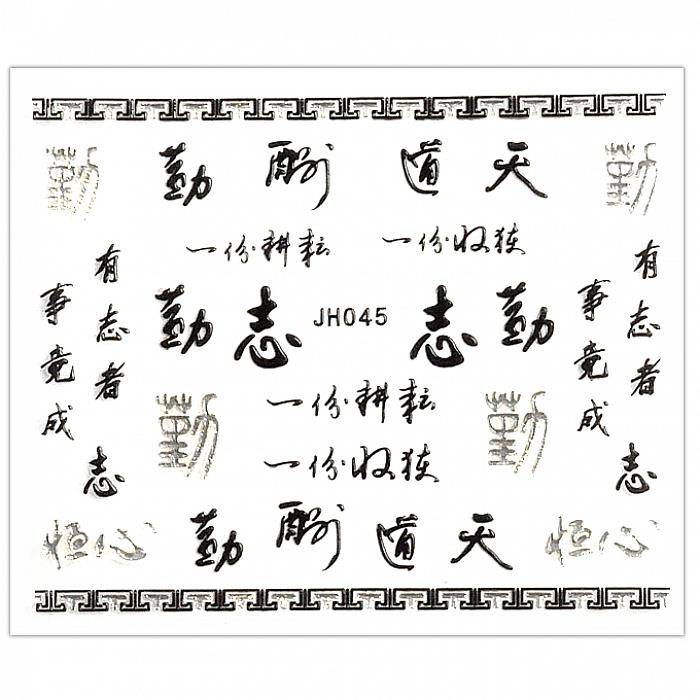 勤
勤酬道天
勤
一份耕耘
一份收获
有志者
事竟成
勤
志
JH045
志
勤
有志者
事竟成
一份耕耘
一份收获
勤
勤
志
志
恒心
勤酬道天
恒心